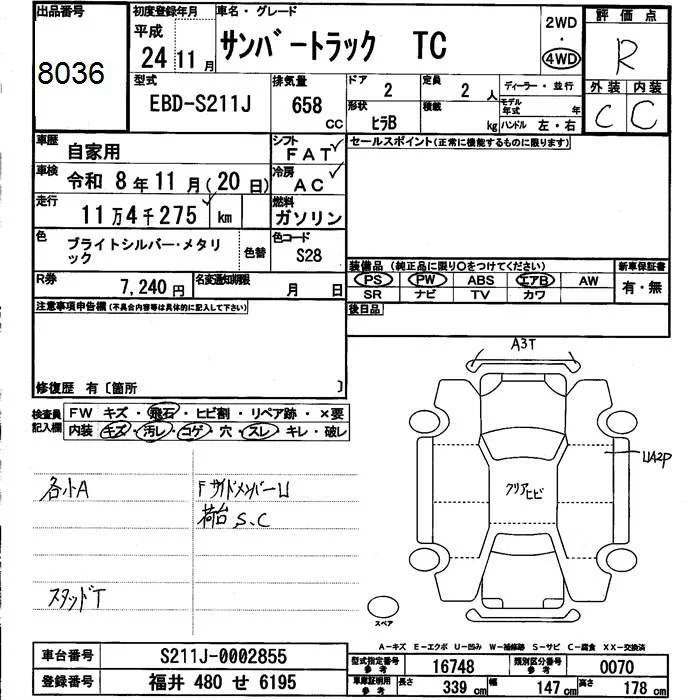 出品番号 8036
初度登録年月 平成 24年 11月
車名・グレード サンバートラック TC
2WD・4WD
評価点 R
外装 C 内装 C
型式 EBD-S211J
排気量 658 CC
ドア 2
定員 2 人
形状 ヒラB
積載 kg
ディーラー・並行
モデル年式 年
ハンドル 左・右
車歴 自家用
シフト FAT
車検 令和 8年 11月(20日)
冷房 AC
走行 11万4千275 km
燃料 ガソリン
色 ブライトシルバー・メタリック
色替
色コード S28
R券 7,240円
名変通知期限 月 日
セールスポイント(正常に機能するものに限ります)
装備品(純正品に限り○をつけてください)
新車保証書
PS PW ABS エアB AW
SR ナビ TV カワ
有・無
後日品
注意事項申告欄(不具合内容等は具体的に記入して下さい)
修復歴 有〔箇所 〕
検査員記入欄
FW キズ・飛石・ヒビ割・リペア跡・×要
内装 キズ・汚レ・コゲ・穴・スレ・キレ・破レ
各小A
FサイドメンバーU
荷台 S、C
スタッドT
A3T
UA2P
クリアヒビ
スペア
A-キズ E-エクボ U-凹み W-補修跡 S-サビ C-腐食 XX-交換済
車台番号 S211J-0002855
登録番号 福井 480 せ 6195
型式指定番号 参考 16748
類別区分番号 参考 0070
車庫証明用 参考 長さ 339 cm 幅 147 cm 高さ 178 cm